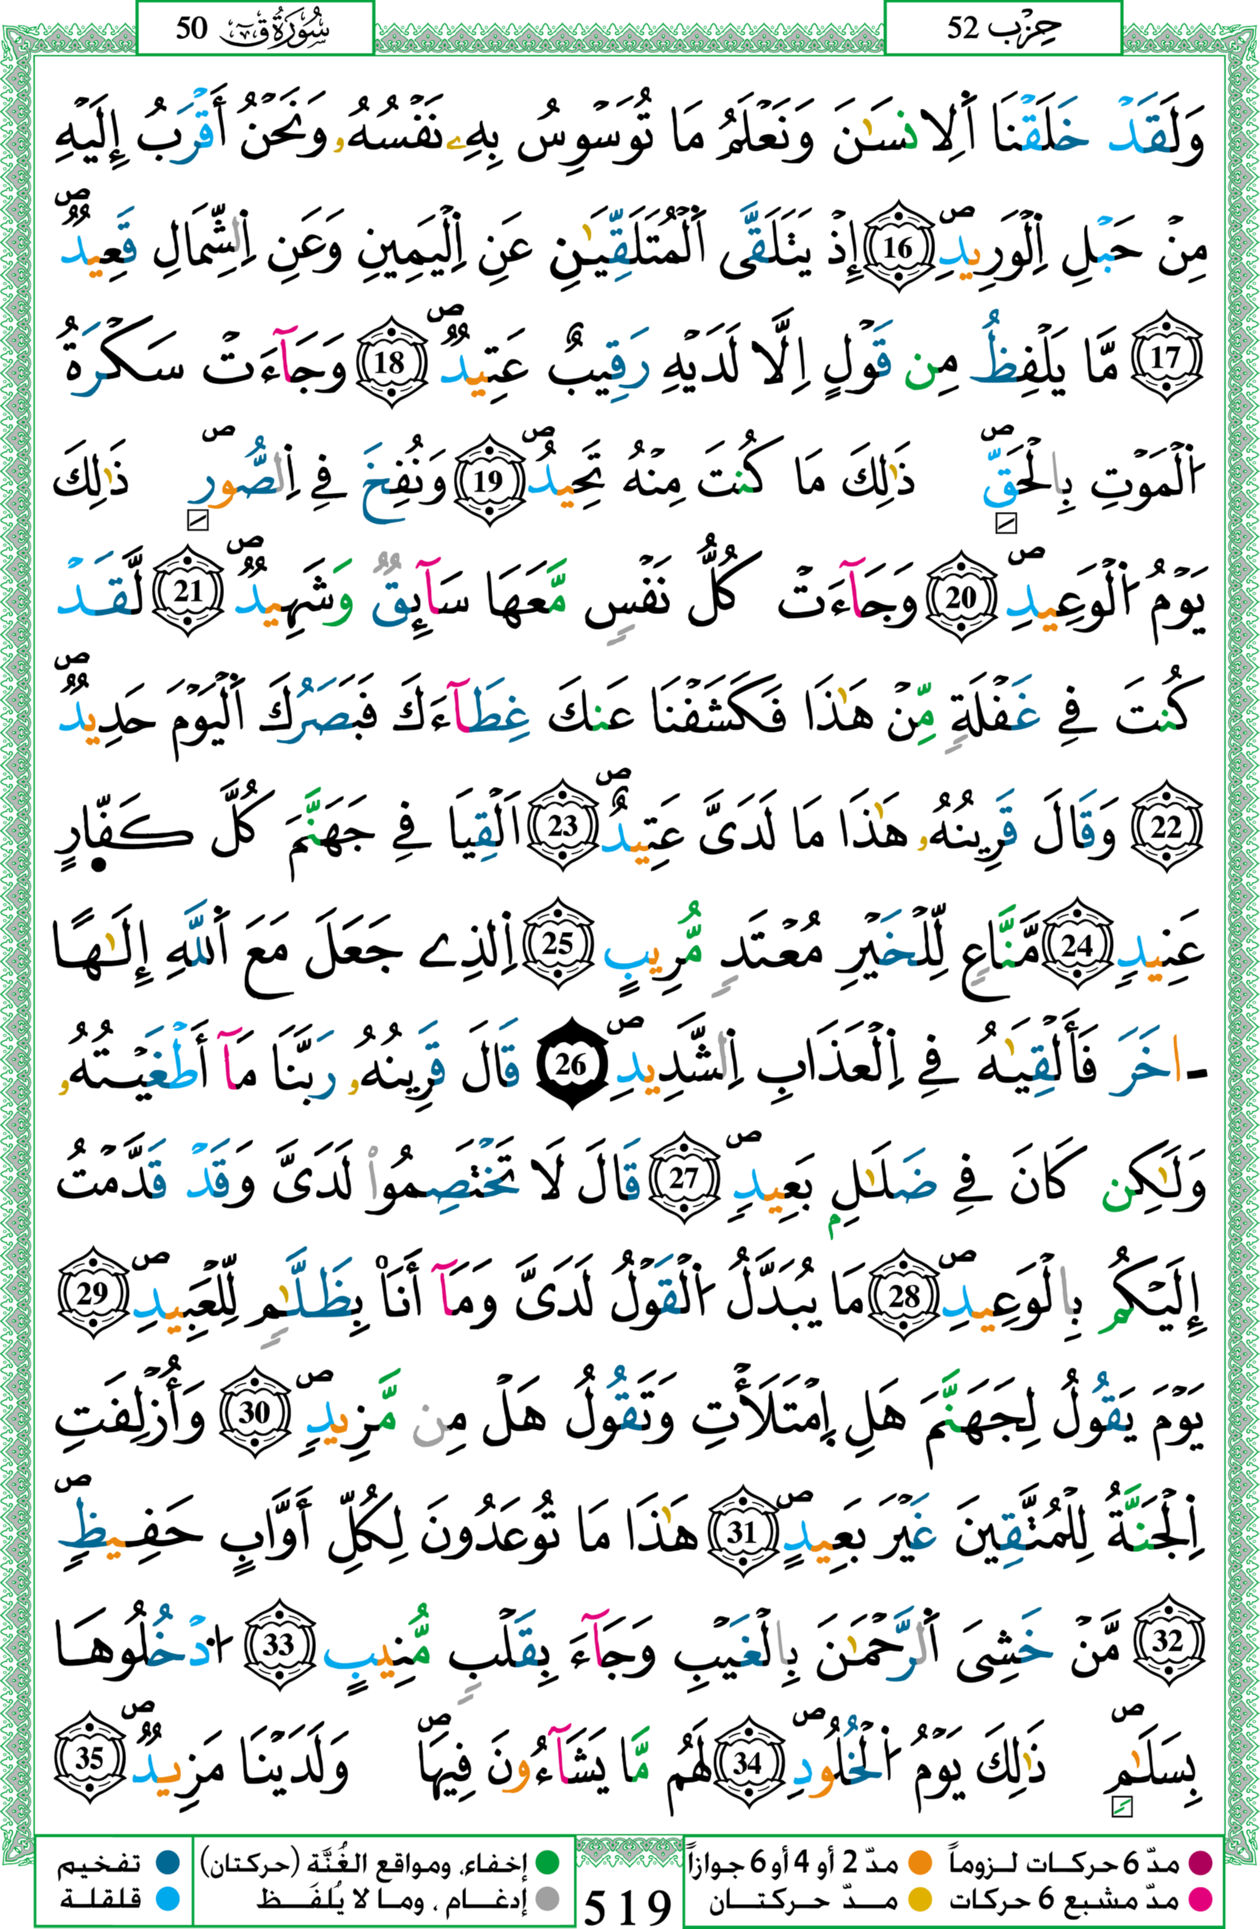 حِزْب 52
سُورَةُ قٓ 50
وَلَقَدْ خَلَقْنَا اَ۬لِانسَٰنَ وَنَعْلَمُ مَا تُوَسْوِسُ بِهِۦ نَفْسُهُۥ وَنَحْنُ أَقْرَبُ إِلَيْهِ
مِنْ حَبْلِ اِ۬لْوَرِيدِۖ 16 إِذْ يَتَلَقَّى اَ۬لْمُتَلَقِّيَٰنِ عَنِ اِ۬لْيَمِينِ وَعَنِ اِ۬لشِّمَالِ قَعِيدٞۖ
17 مَّا يَلْفِظُ مِن قَوْلٍ اِلَّا لَدَيْهِ رَقِيبٌ عَتِيدٞۖ 18 وَجَآءَتْ سَكْرَةُ
اُ۬لْمَوْتِ بِالْحَقِّۖ ذَٰلِكَ مَا كُنتَ مِنْهُ تَحِيدُۖ 19 وَنُفِخَ فِے اِ۬لصُّورِۖ ذَٰلِكَ
يَوْمُ اُ۬لْوَعِيدِۖ 20 وَجَآءَتْ كُلُّ نَفْسٖ مَّعَهَا سَآئِقٞ وَشَهِيدٞۖ 21 لَّقَدْ
كُنتَ فِے غَفْلَةٖ مِّنْ هَٰذَا فَكَشَفْنَا عَنكَ غِطَآءَكَ فَبَصَرُكَ اَ۬لْيَوْمَ حَدِيدٞۖ
22 وَقَالَ قَرِينُهُۥ هَٰذَا مَا لَدَيَّ عَتِيدٌۖ 23 اَلْقِيَا فِے جَهَنَّمَ كُلَّ كَفّ۪ارٍ
عَنِيدٖ 24 مَّنَّاعٖ لِّلْخَيْرِ مُعْتَدٖ مُّرِيبٍ 25 اِ۬لذِے جَعَلَ مَعَ اَ۬للَّهِ إِلَٰهاً
-اخَرَ فَأَلْقِيَٰهُ فِے اِ۬لْعَذَابِ اِ۬لشَّدِيدِۖ 26 قَالَ قَرِينُهُۥ رَبَّنَا مَآ أَطْغَيْتُهُۥ
وَلَٰكِن كَانَ فِے ضَلَٰلِۢ بَعِيدٖۖ 27 قَالَ لَا تَخْتَصِمُواْ لَدَيَّ وَقَدْ قَدَّمْتُ
إِلَيْكُم بِالْوَعِيدِۖ 28 مَا يُبَدَّلُ اُ۬لْقَوْلُ لَدَيَّ وَمَآ أَنَا۠ بِظَلَّٰمٖ لِّلْعَبِيدِۖ 29
يَوْمَ يَقُولُ لِجَهَنَّمَ هَلِ اِ۪مْتَلَأْتِ وَتَقُولُ هَلْ مِن مَّزِيدٖۖ 30 وَأُزْلِفَتِ
اِ۬لْجَنَّةُ لِلْمُتَّقِينَ غَيْرَ بَعِيدٍۖ 31 هَٰذَا مَا تُوعَدُونَ لِكُلِّ أَوَّابٍ حَفِيظٖۖ
32 مَّنْ خَشِيَ اَ۬لرَّحْمَٰنَ بِالْغَيْبِ وَجَآءَ بِقَلْبٖ مُّنِيبٍ 33 اُ۟دْخُلُوهَا
بِسَلَٰمٖۖ ذَٰلِكَ يَوْمُ اُ۬لْخُلُودِۖ 34 لَهُم مَّا يَشَآءُونَ فِيهَاۖ وَلَدَيْنَا مَزِيدٞۖ 35
مدّ 6 حركات لزوماً مدّ 2 أو 4 أو 6 جوازاً إخفاء، ومواقع الغُنَّة (حركتان) تفخيم
مدّ مشبع 6 حركات مدّ حركتان إدغام ، وما لا يُلفَظ قلقلة
519